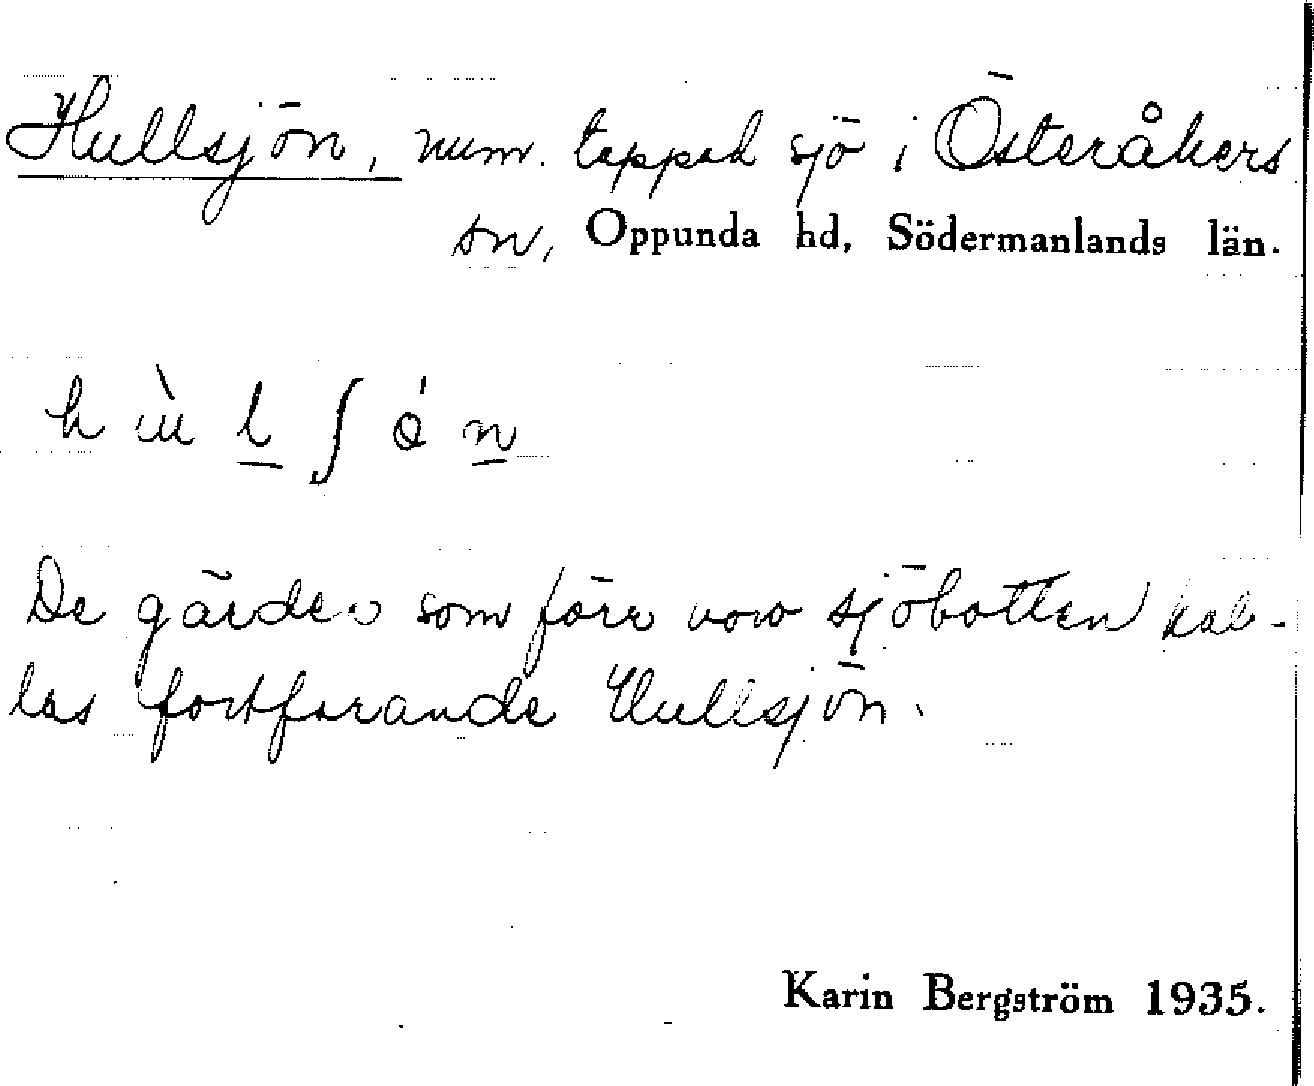 Hullsjön, num. tappad sjö i Österåkers
sn, Oppunda hd, Södermanlands län.
De gärden som förr vore sjöbotten kal-
las fortfarande Hullsjön.
Karin Bergström 1935.